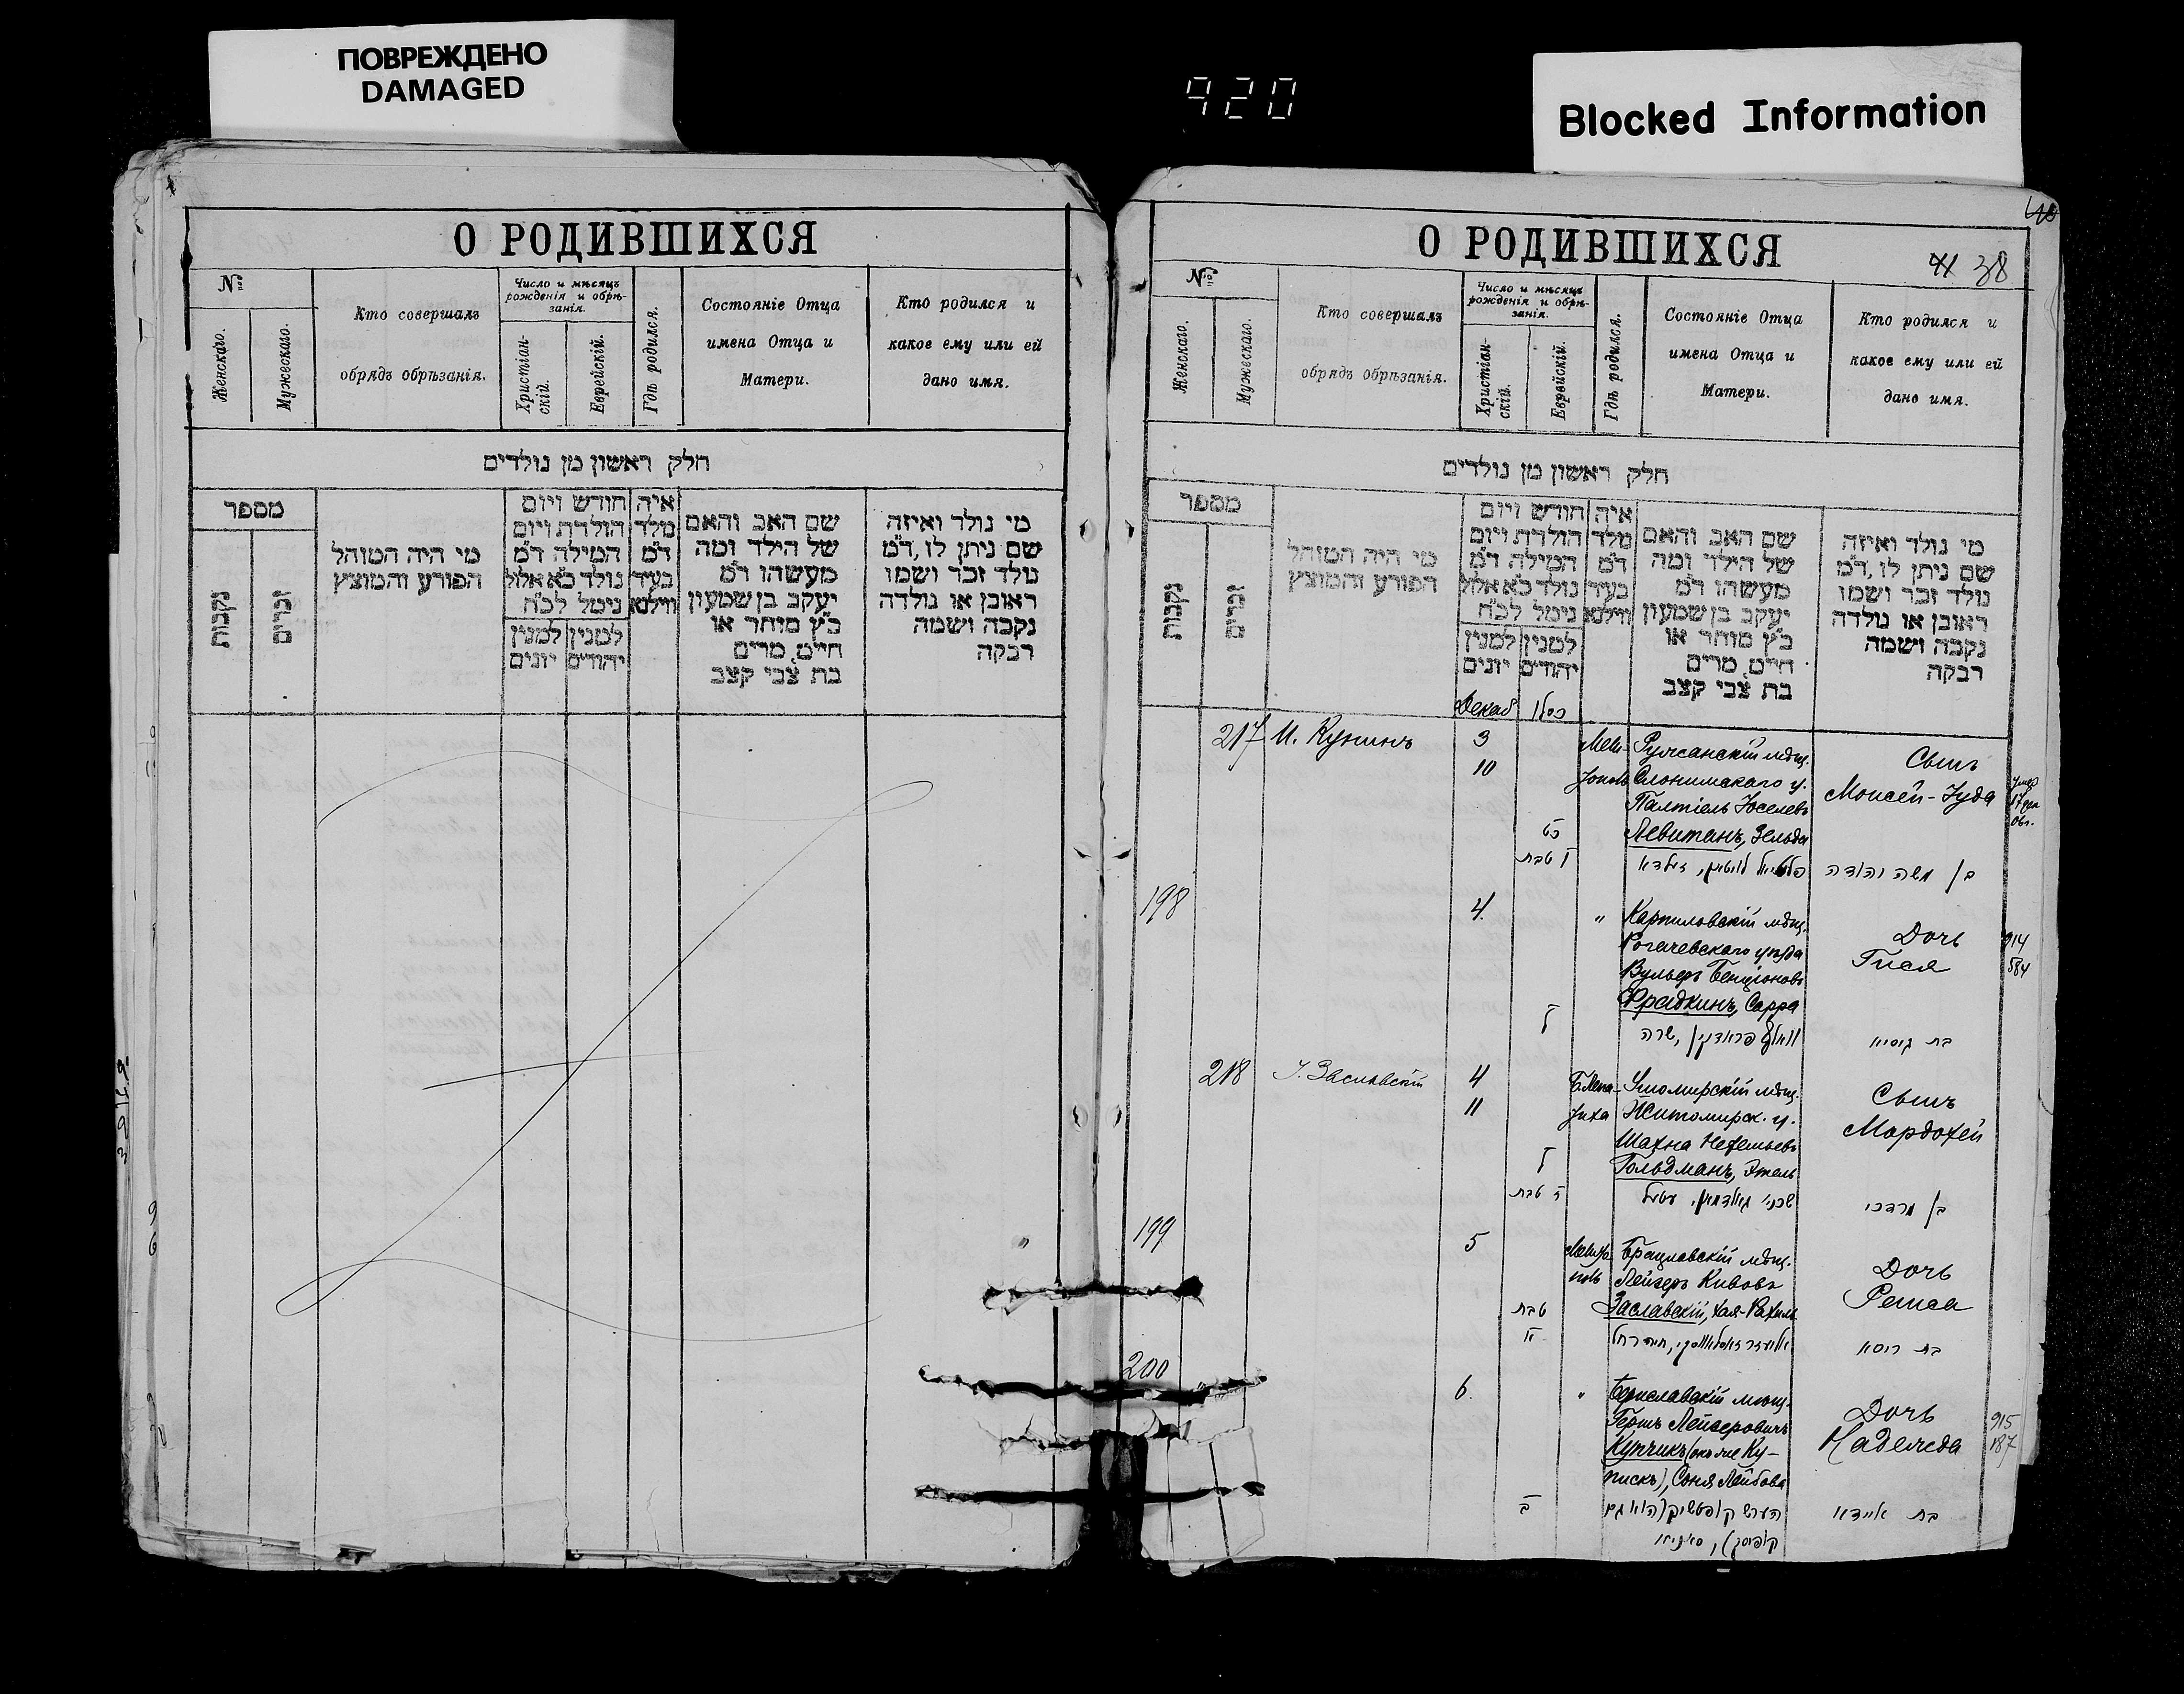 ПОВРЕЖДЕНО
DAMAGED
920
Blocked Information
О РОДИВШИХСЯ
№
Женскаго.
Мужескаго.
Кто совершалъ
обрядъ обрѣзанія.
Число и мѣсяцъ
рожденія и обрѣ-
занія.
Христіан-
скій.
Еврейскій.
Гдѣ родился.
Состояніе Отца
имена Отца и
Матери.
Кто родился и
какое ему или ей
дано имя.
חלק ראשון מן נולדים
מספר
נקבות
זכרים
מי היה המוהל
הפורע והמוצץ
חודש ויום
הולדת ויום
המילה ד"מ
נולד כ"א אלול
נימל לכ"ח
למנין
יהודים
למנין
יונים
איה
מלד
ד"מ
בעיר
ווילנא
שם האב והאם
של הילד ומה
מעשהו ד"מ
יעקב בן שמעון
כ"ץ סוחר או
חייט, מרים
בת צבי קצב
מי נולד ואיזה
שם ניתן לו, ד"מ
נולד זכר ושמו
ראובן או נולדה
נקבה ושמה
רבקה
О РОДИВШИХСЯ
38
№
Женскаго.
Мужескаго.
Кто совершалъ
обрядъ обрѣзанія.
Число и мѣсяцъ
рожденія и обрѣ-
занія.
Христіан-
скій.
Еврейскій.
Гдѣ родился.
Состояніе Отца
имена Отца и
Матери.
Кто родился и
какое ему или ей
дано имя.
חלק ראשון מן נולדים
מספר
נקבות
זכרים
מי היה המוהל
הפורע והמוצץ
חודש ויום
הולדת ויום
המילה ד"מ
נולד כ"א אלול
נימל לכ"ח
למנין
יהודים
למנין
יונים
איה
מלד
ד"מ
בעיר
ווילנא
שם האב והאם
של הילד ומה
מעשהו ד"מ
יעקב בן שמעון
כ"ץ סוחר או
חייט, מרים
בת צבי קצב
מי נולד ואיזה
שם ניתן לו, ד"מ
נולד זכר ושמו
ראובן או נולדה
נקבה ושמה
רבקה
Декаб כסלו
217 И. Кунинъ 3 Мели- Ружсанскій мѣщ. Сынъ
10 Слонимскаго у. Моисей-Іуда
Палтіель Іоселевъ
כט Левитанъ, Зельда
טבת זעלדא בן משה יהודה
198 4 " Карпиловскій мѣщ. Дочь 914
Рогачевскаго уѣзда Гися 584
Вульфъ Бенціоновъ
Фрадкинъ, Сарра
וואלף פראדקין, שרה בת גיסיא
218 І. Заславскій 4 Сынъ
11 Житомирск. у. Мордохей
Шахна
Гольдманъ, Этель
טבת שכנא גאלדמאן, עטיל בן מרדכי
199 5 Брацлавскій мѣщ. Дочь
Лейзеръ Кивовъ Рейса
טבת Заславскій, Хая-Рахиль
אליעזר זאסלאווסקי, חיה רחל בת רייסא
200 6. " Бериславскій мѣщ. Дочь 915
Гершъ Лейзеровичъ Надежда 187
Купчикъ (онъ же Ку-
пискъ), Соня Лейбова
הערש קופטשיק (הוא גם בת איידא
קופיסק), סאניא